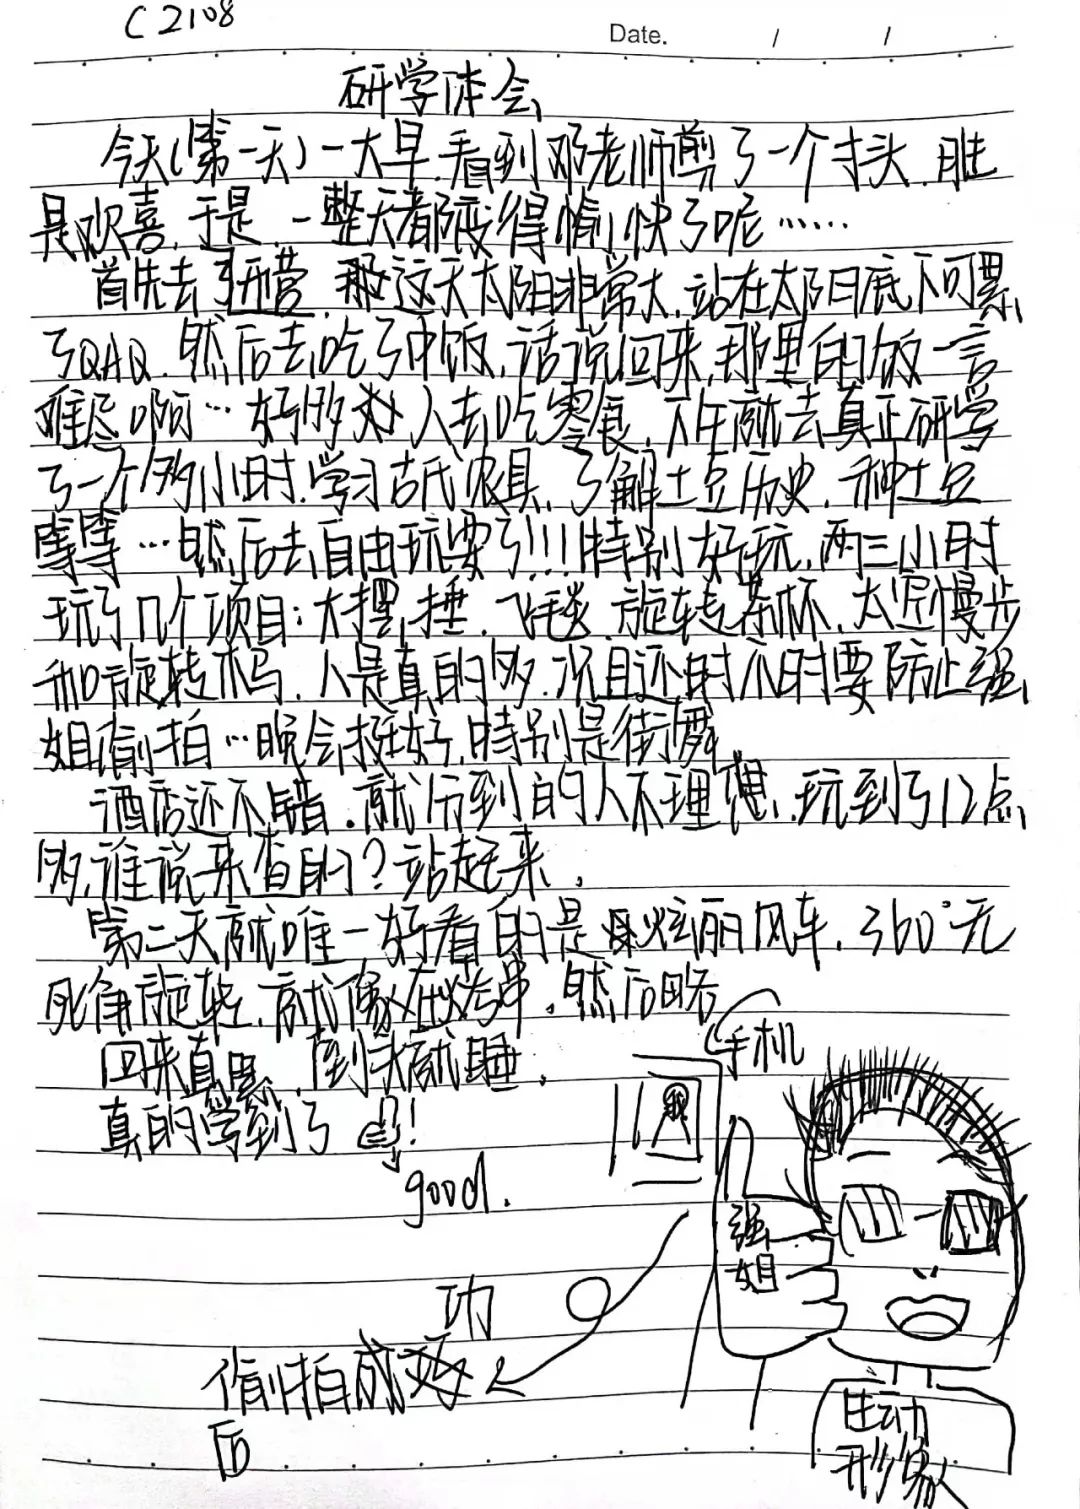 C2108
Date. / /
研学体会
今天(第一天)一大早,看到邓老师剪了一个寸头,甚
是欢喜,于是,一整天都变得愉快了呢……
首先去了开营,那这天太阳非常大,站在太阳底下可累
了QAQ.然后去吃了中饭,话说回来,那里的饭一言
难尽啊…好多人去吃零食,下午就去真正研学
了一个多小时,学习古代农具,了解土豆历史,种土豆
等等…然后去自由玩耍了!!!特别好玩,两三小时
玩了几个项目:大摆捶,飞毯,旋转茶杯,太空慢步
和旋转木马,人是真的多,况且还时不时要防止强
姐偷拍…晚会挺好,特别是街舞
酒店还不错.就分到的人不理想,玩到了12点
多,谁说来查的?站起来.
第二天就唯一好看的是炫丽风车,360°无
死角旋转,就像在烤串,然后略
回来真累,倒头就睡.
真的学到了!
good.
手机
我
强
姐
功
偷拍成
后
生动
形象